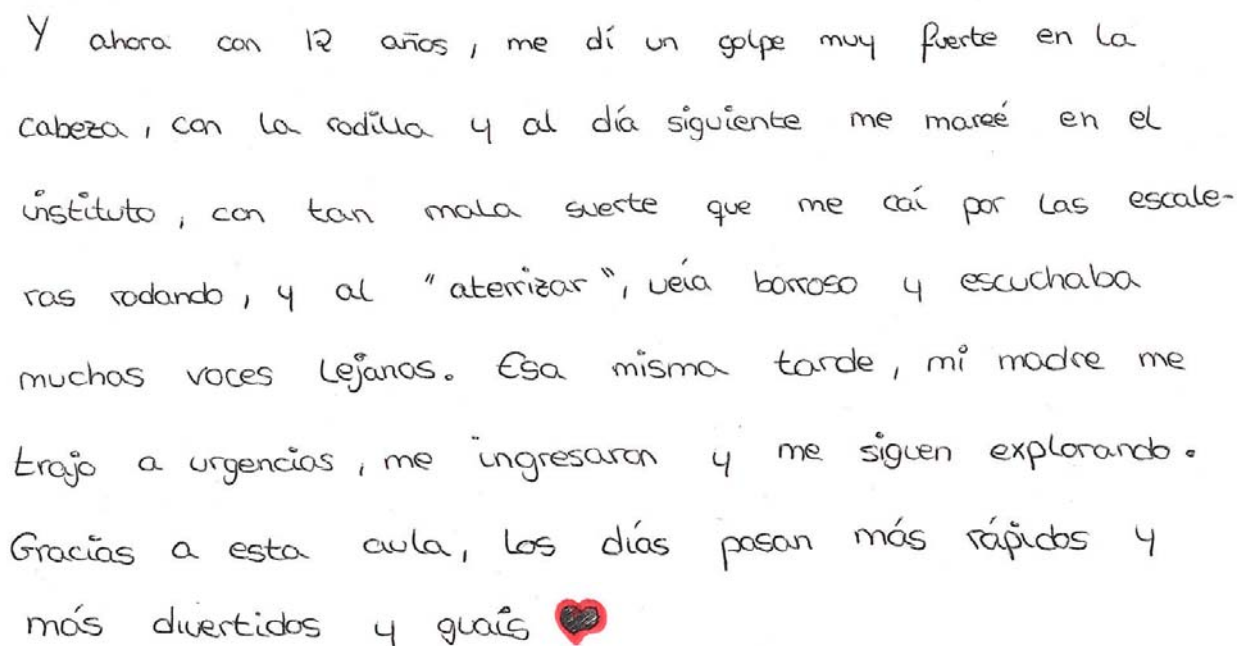 Y ahora con 12 años, me dí un golpe muy fuerte en la
cabeza, con la rodilla y al día siguiente me mareé en el
instituto, con tan mala suerte que me caí por las escale-
ras rodando, y al "aterrizar", veía borroso y escuchaba
muchas voces lejanas. Esa misma tarde, mi madre me
trajo a urgencias, me ingresaron y me siguen explorando.
Gracias a esta aula, los días pasan más rápidos y
más divertidos y guais